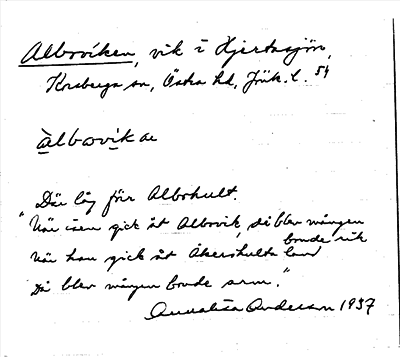 Albroviken, vik i Hjertasjön,
Korsberga sn, Östra hd, Jönk. l. 54
àlbrovik ae
Där låg förr Albohult.
"När isen gick åt Albovik, så blev mången bonde rik
När han gick åt Åkershults land
Då blev mången bonde arm."
Annalisa Anderson 1937